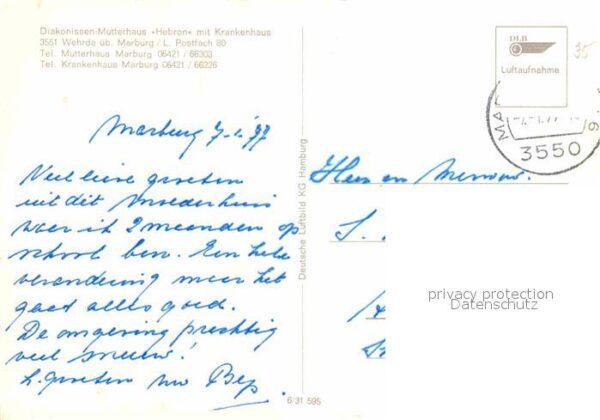 Diakonissen-Mutterhaus «Hebron» mit Krankenhaus
3551 Wehrda üb. Marburg / L. Postfach 80
Tel. Mutterhaus Marburg 06421 / 66303
Tel. Krankenhaus Marburg 06421 / 66226
DLB
Luftaufnahme
35
3550
Marburg 7-1-'77
Veel lieve groeten
uit dit Moederhuis
waar ik 2 maanden op
school ben. Een hele
verandering maar het
gaat alles goed.
De omgeving prachtig
veel sneeuw!
h. groeten Bep.
Deutsche Luftbild KG Hamburg
Heer en Mevrouw.
S.
privacy protection
Datenschutz
6/31 595